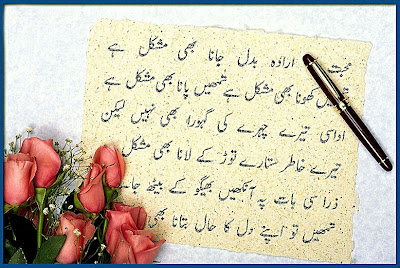 محبت ارادہ بدل جانا بھی مشکل ہے
کھونا بھی مشکل ہے تمھیں پانا بھی مشکل ہے
اداسی تیرے چہرے کی گوارا بھی نہیں لیکن
تیرے خاطر ستارے توڑ کے لانا بھی مشکل
ذرا سی بات پہ آنکھیں بھیگو کے بیٹھ
تمھیں تو اپنے دل کا حال بتانا بھی